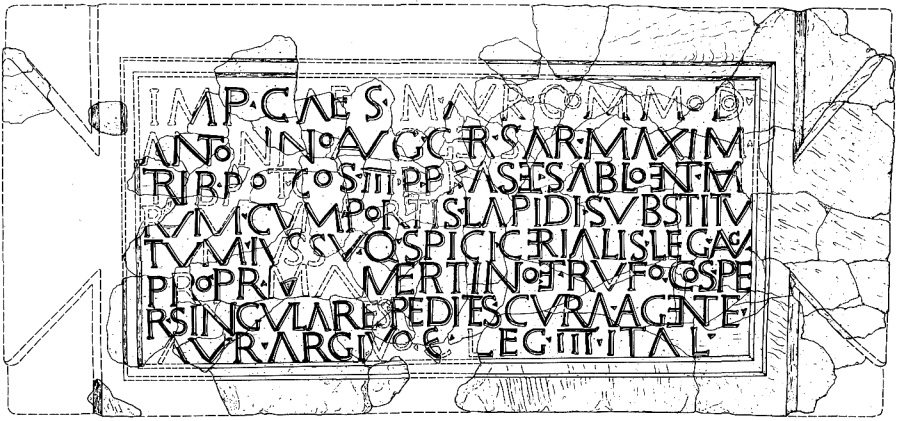 IMP·CAES·M·AVR·COMMOD·
ANTONINO·AVG GER·SAR·MAXIM
TRIB·POT·COS·III·P·P·KAS·SABLONET·MV
RVM·CVM·PORTIS·LAPIDI·SVBSTITV
TVM·IVSSV·Q·SPICI·CERIALIS·LEG·AVG
PRO·PR·MAMERTINO·ET·RVFO·COS PE
R SINGVLARES PEDITES CVRA·AGENTE·
AVR·ARGIVO LEG·III·ITAL·